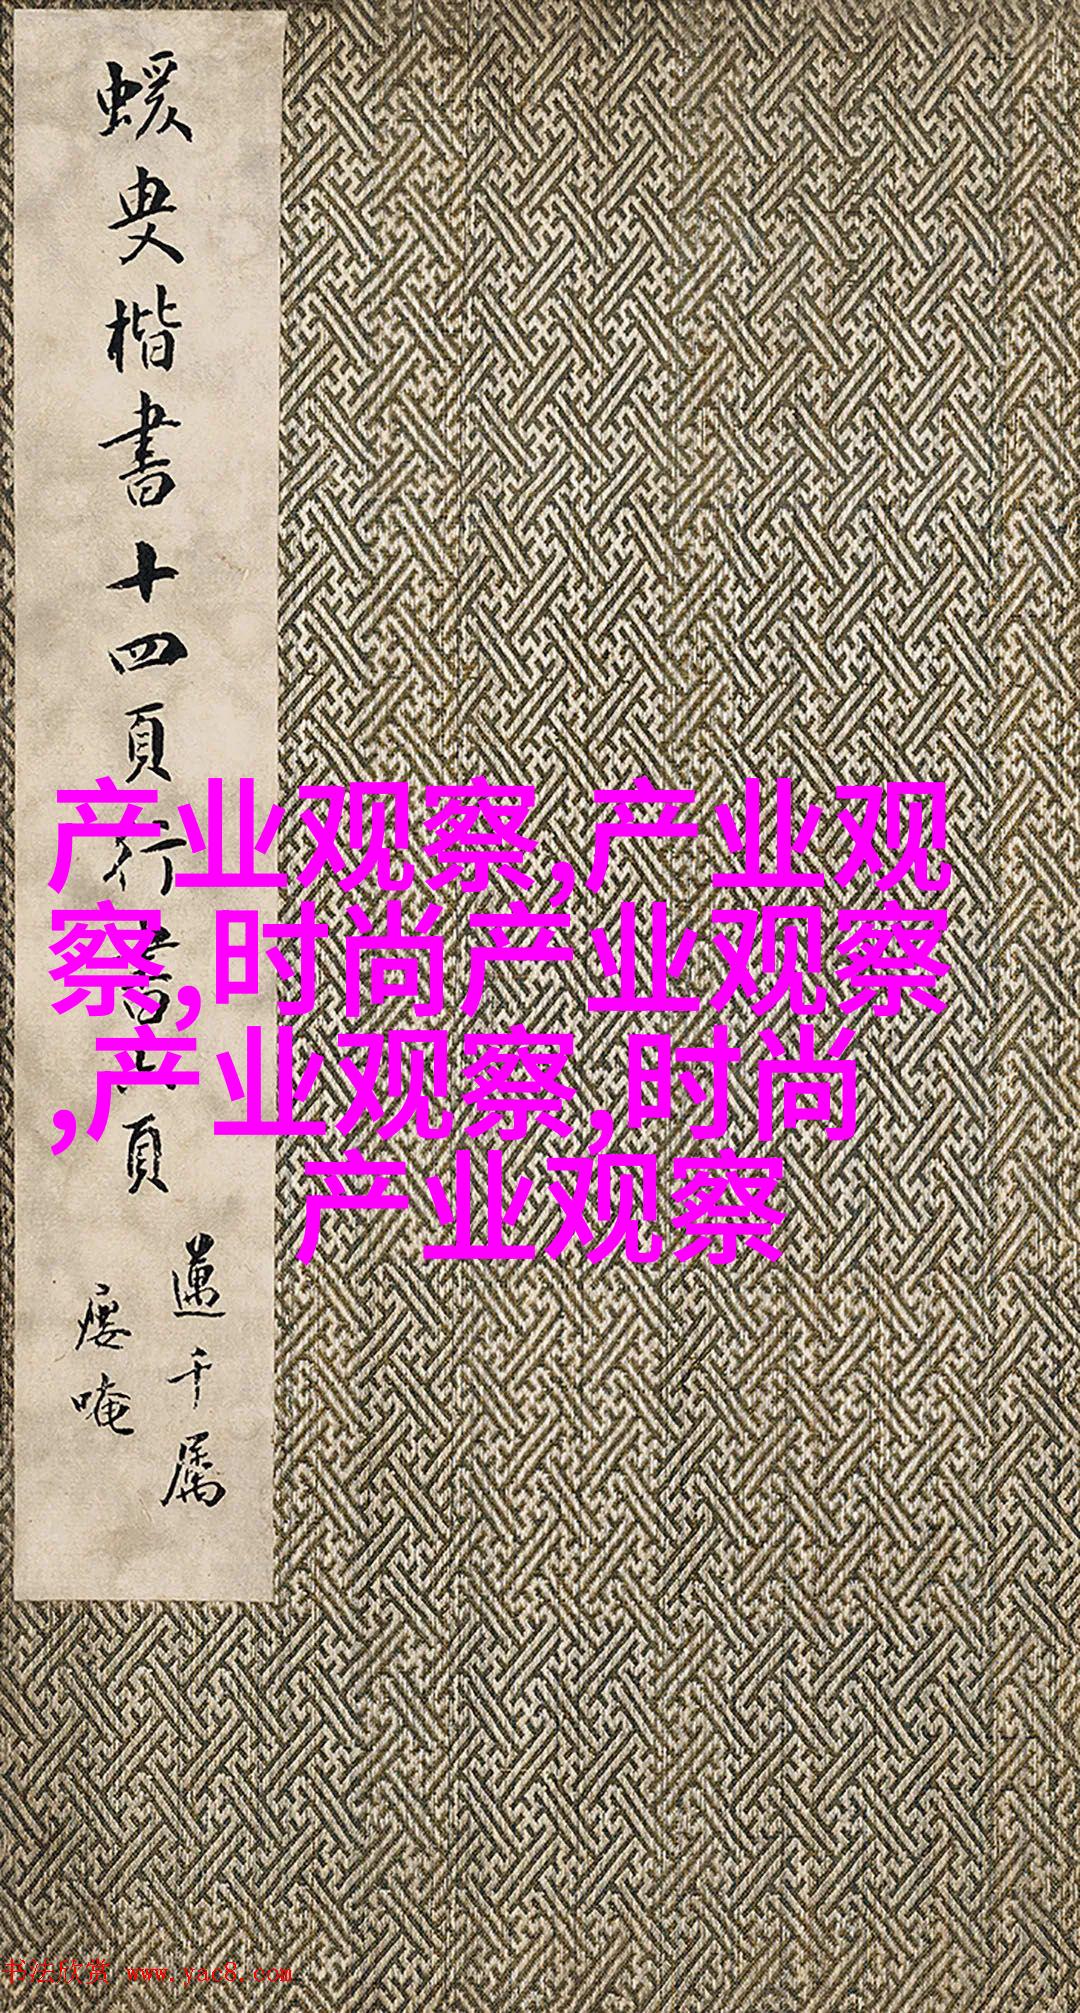 蝯叟楷書十四頁行書六頁
邁千屬
㾞唵
产业观察,产业观
察,时尚产业观察
,产业观察,时尚
产业观察
书法欣赏 www.yac8.com